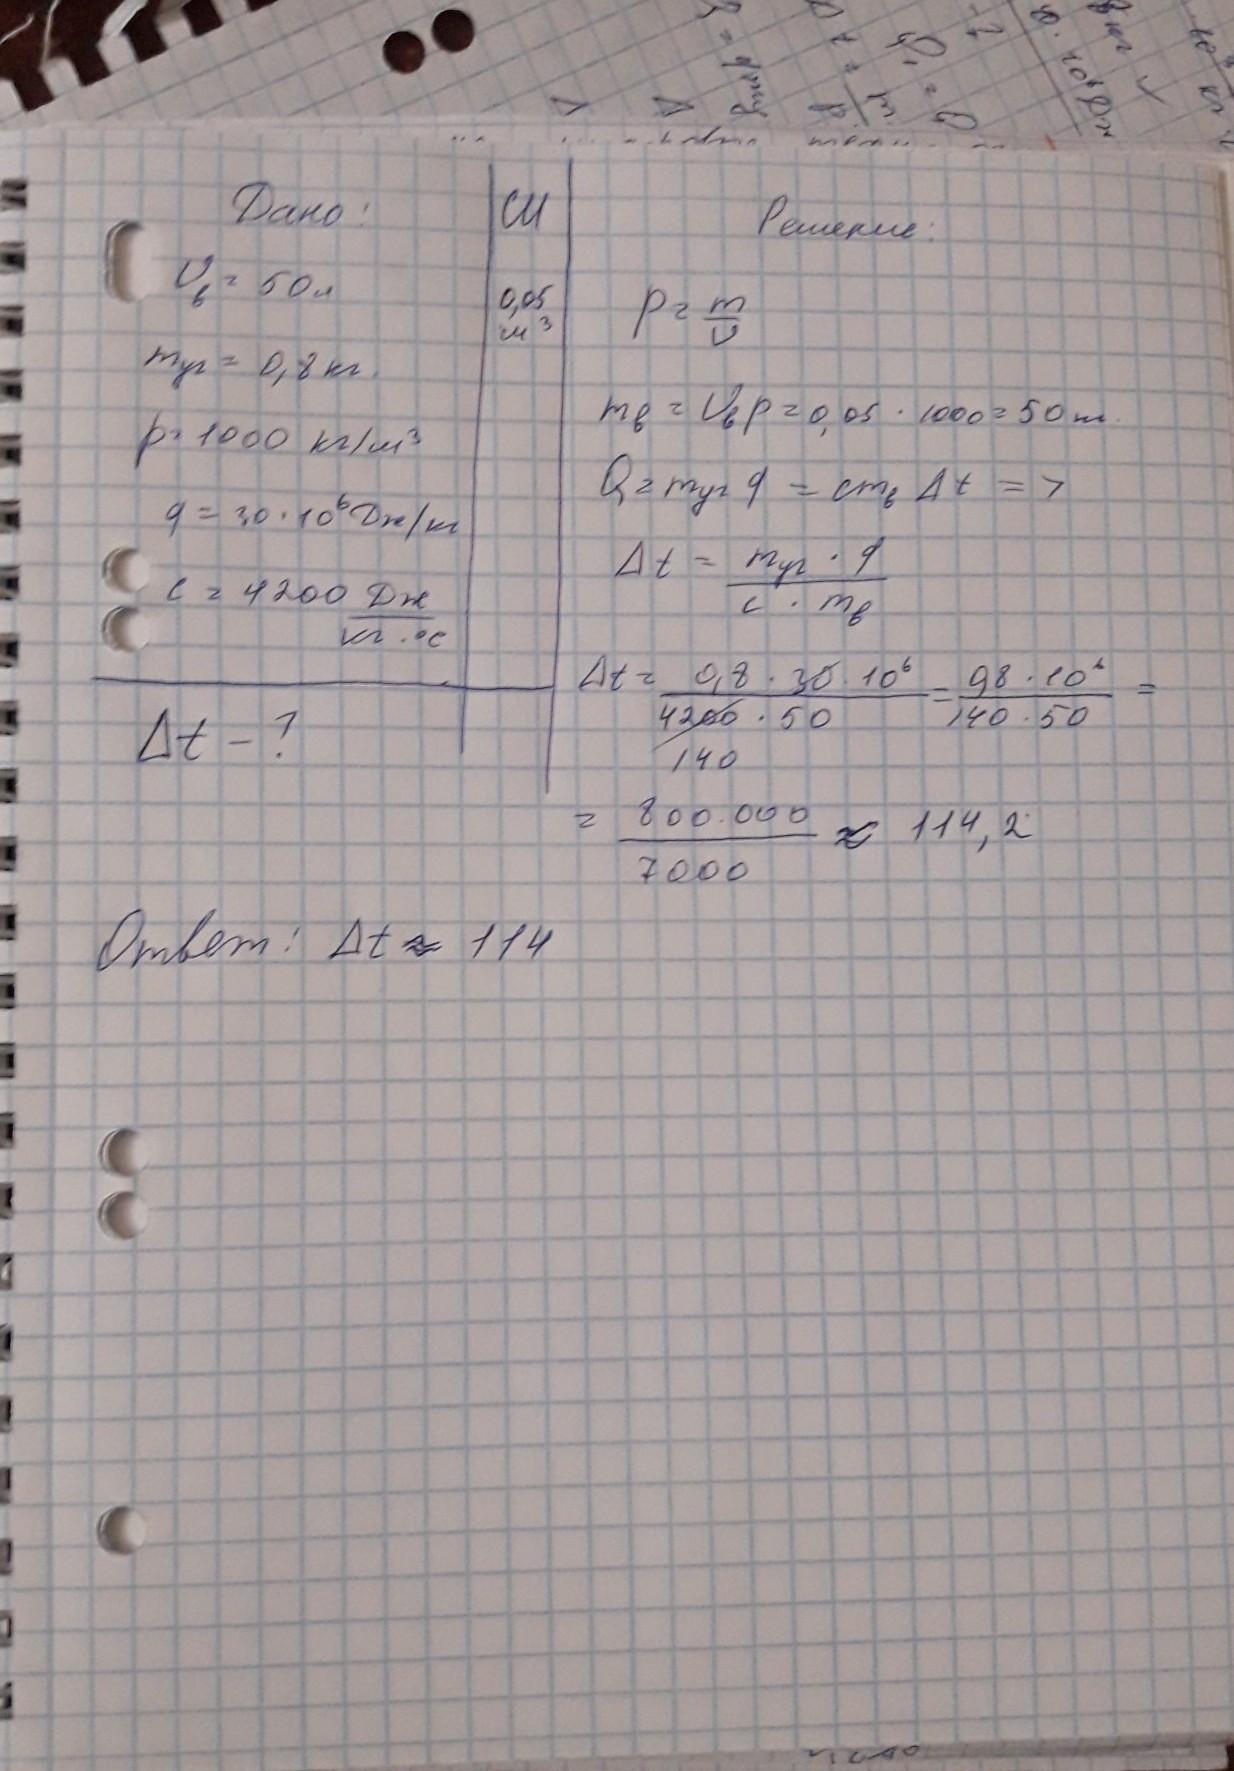 Дано:
Vв = 50л
mуг = 0,8 кг.
p = 1000 кг/м³
q = 30 · 10⁶ Дж/кг
c = 4200 Дж
кг · °c
Δt - ?
СИ
0,05
м³
Решение:
p = m
V
mв = Vв p = 0,05 · 1000 = 50 кг.
Q = mуг q = cmв Δt = >
Δt = mуг · q
c · mв
Δt = 0,8 · 30 · 10⁶ = 0,8 · 10⁶ =
4200 · 50 140 · 50
140
= 800.000 ≈ 114,2
7000
Ответ: Δt ≈ 114